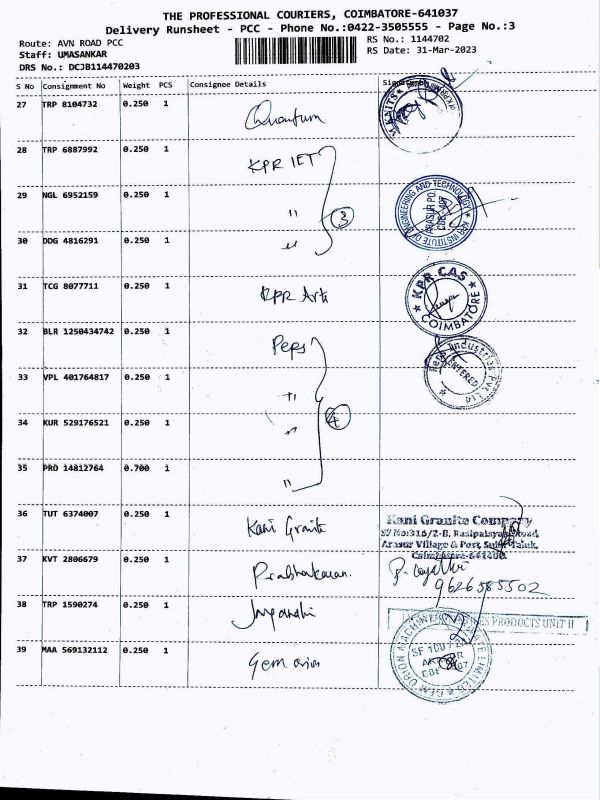 THE PROFESSIONAL COURIERS, COIMBATORE-641037
Delivery Runsheet - PCC - Phone No.:0422-3505555 - Page No.:3
Route: AVN ROAD PCC
RS No.: 1144702
Staff: UMASANKAR
RS Date: 31-Mar-2023
DRS No.: DCJB114470203
S No Consignment No Weight PCS Consignee Details
27 TRP 8104732 0.250 1 Quantum
28 TRP 6887992 0.250 1 KPR IET
29 NGL 6952159 0.250 1 " 3
KPR INSTITUTE OF ENGINEERING AND TECHNOLOGY
ARASUR PO
CBE - 407
30 DDG 4816291 0.250 1 "
31 TCG 8077711 0.250 1 KPR Arts
KPR CAS
COIMBATORE
32 BLR 1250434742 0.250 1 Peps
Peps Industries Pvt. Ltd
ENTERED
33 VPL 401764817 0.250 1 "
34 KUR 529176521 0.250 1 " 4
35 PRO 14812764 0.700 1 "
36 TUT 6374007 0.250 1 Kani Granite
Kani Granite Company
SF No:316/2-B, Rasipalayam Road,
Arasur Village & Post, Sulur Taluk,
Coimbatore-641400.
37 KVT 2806679 0.250 1 Prabhakaran.
9626585502
38 TRP 1590274 0.250 1
PRODUCTS UNIT II
39 MAA 569132112 0.250 1 Gem orion